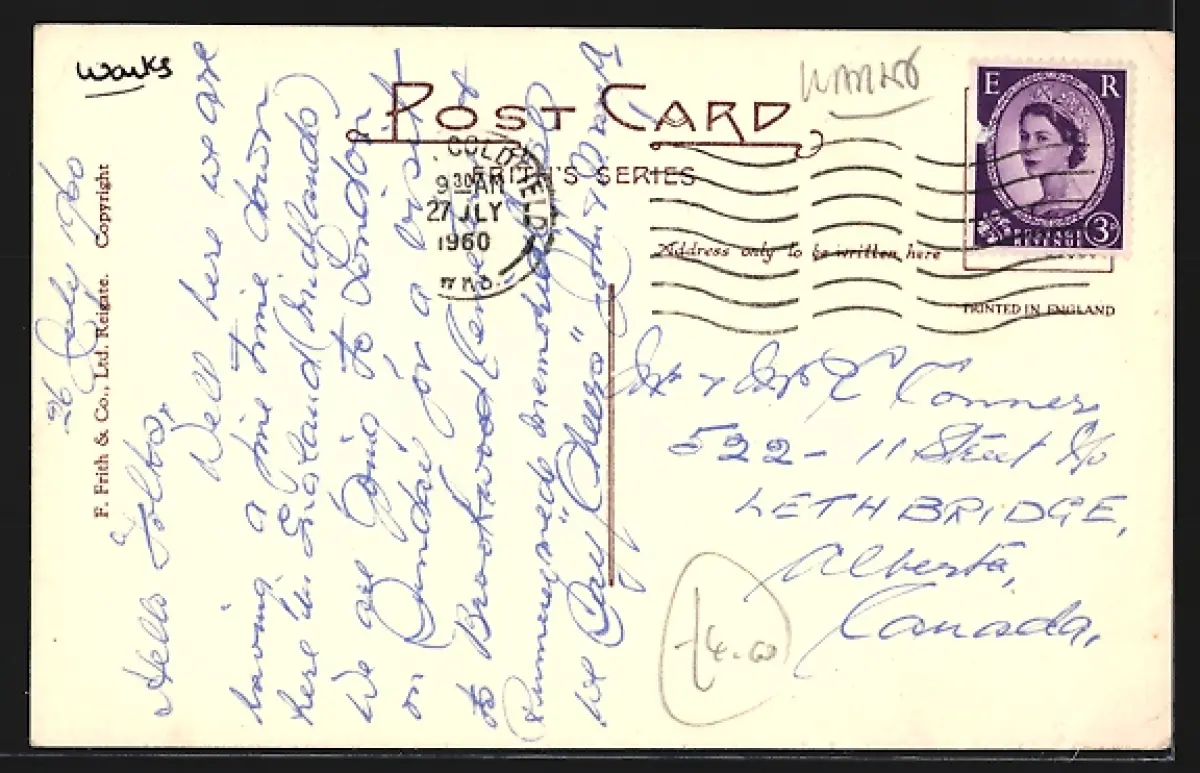 Warks
POST CARD
FRITH'S SERIES
Address only to be written here
PRINTED IN ENGLAND
E R
POSTAGE
REVENUE
3D
COLDFIELD
9 30 AM
27 JLY
1960
F. Frith & Co., Ltd. Reigate. Copyright
26 July 1960
Hello Folks,
Well here we are
having a fine time down
here in England (Midlands)
We are going to London
on Sunday for a visit
to Brookwood Cemetery
Runnymede
we say "Cheers" John &
Mr & Mrs Conners
522 - 11 Street
LETHBRIDGE,
Alberta,
Canada,